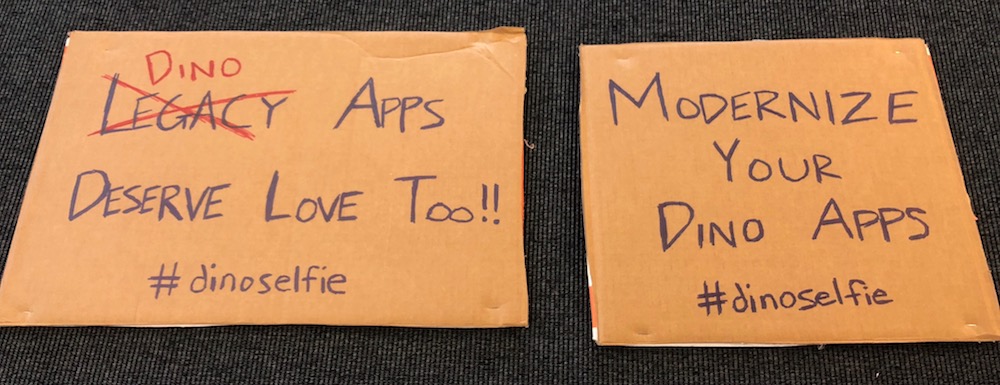 DINO
LEGACY APPS
DESERVE LOVE TOO!!
#dinoselfie
MODERNIZE
YOUR
DINO APPS
#dinoselfie